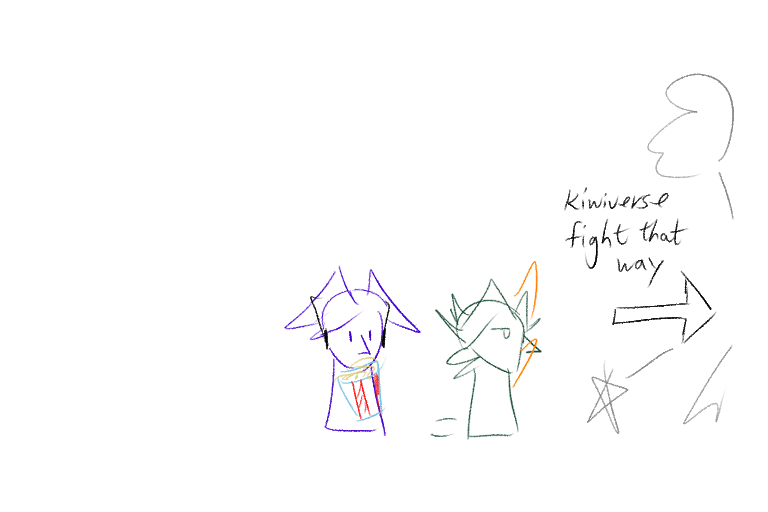 kiwiverse
fight that
way